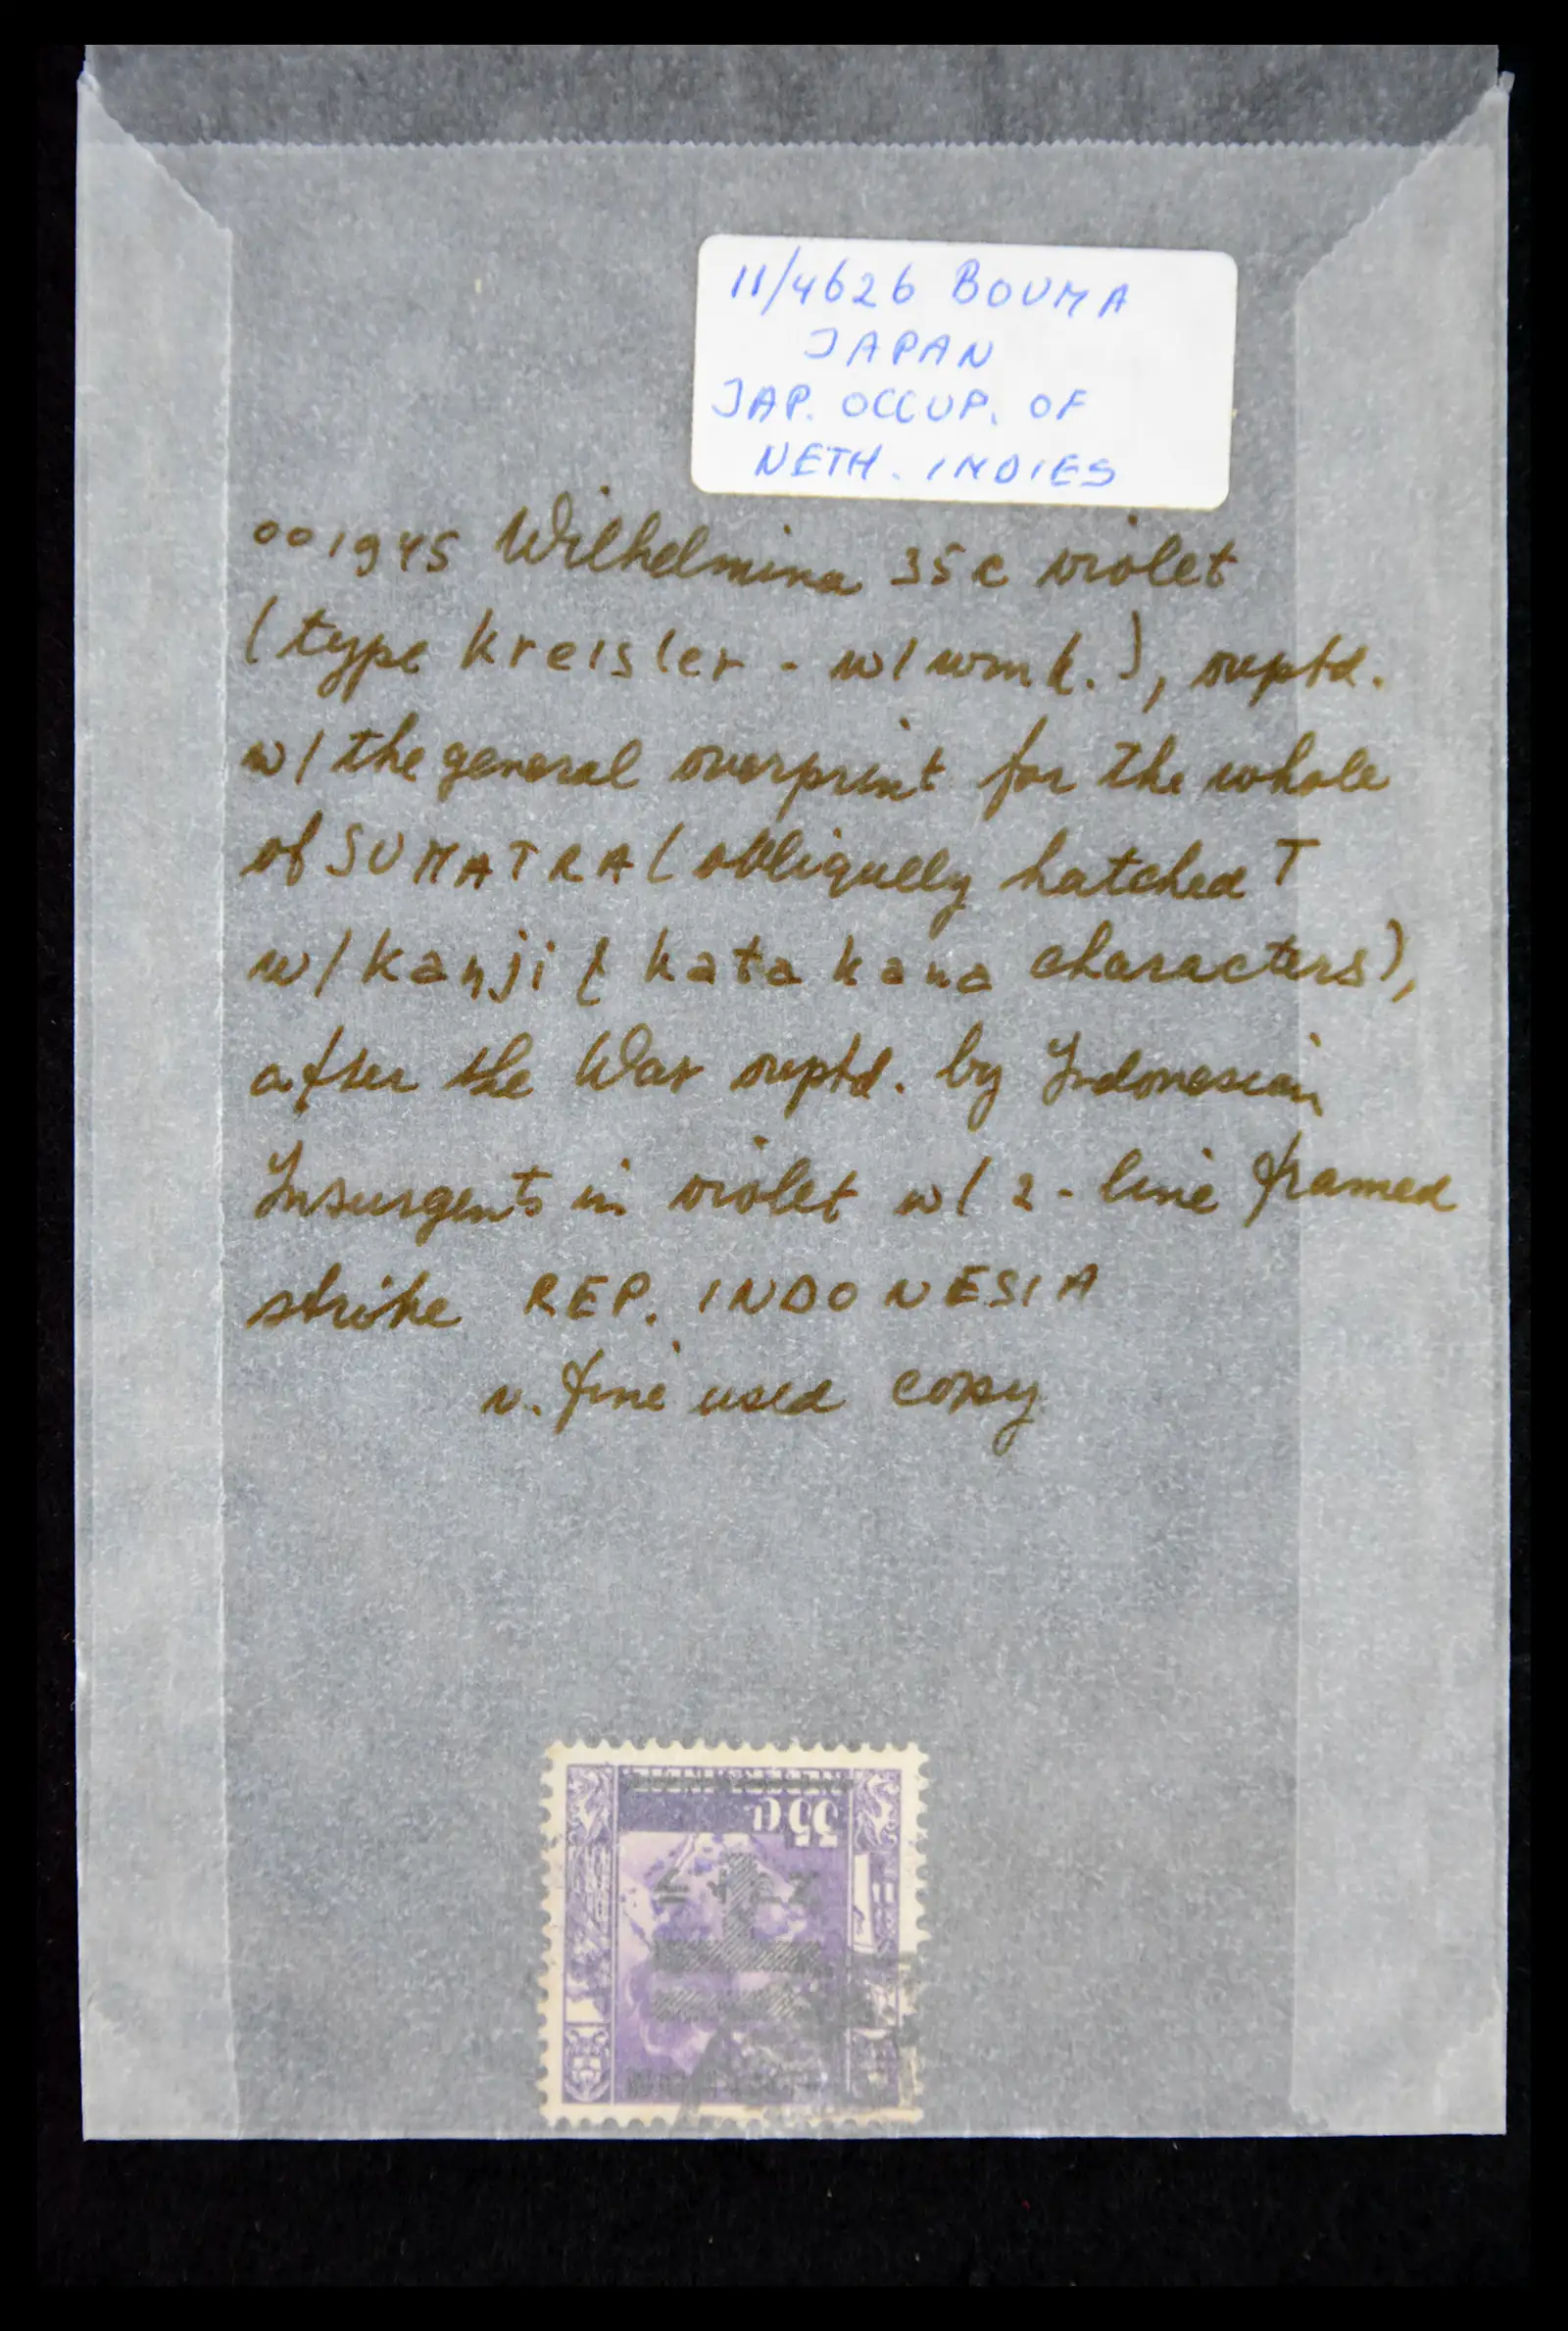 11/4626 BOUMA
JAPAN
JAP. OCCUP. OF
NETH. INDIES
001945 Wilhelmina 35c violet
(type kreisler - w/ wmk.), ovptd.
w/ the general overprint for the whole
of SUMATRA (obliquely hatched T
w/ kanji & katakana characters),
after the War ovptd. by Indonesian
Insurgents in violet w/ 2-line framed
strike REP. INDONESIA
v. fine used copy
35 c.